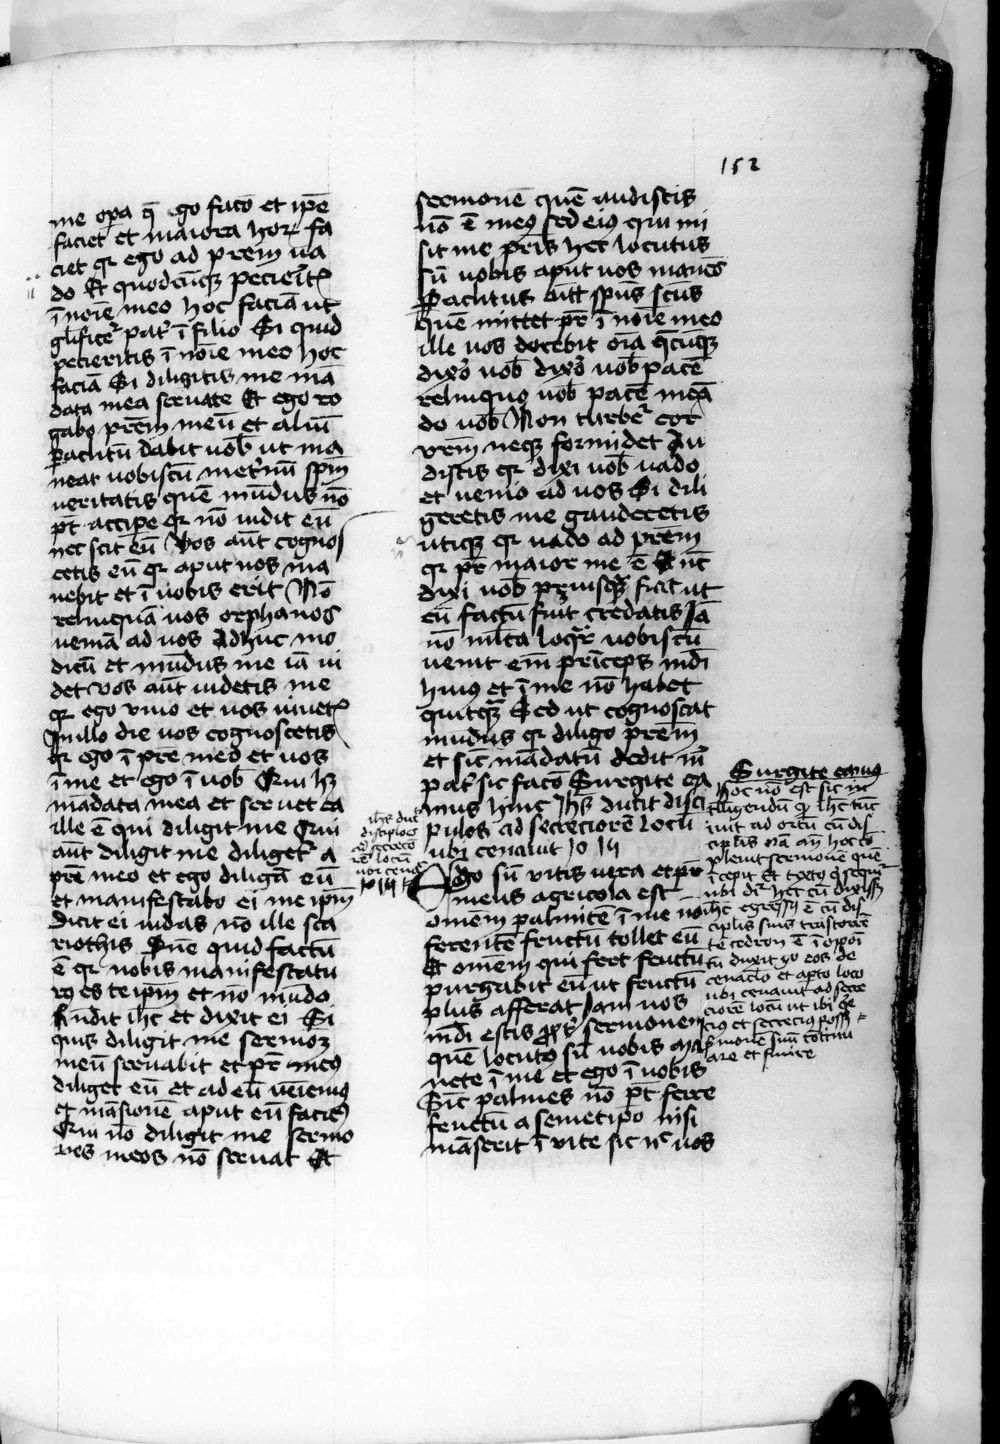 152
me op̄a q̄ ego facō et ip̄e
faciet et maiora hor̄ fa
ciet qr ego ad prēm ua
do Et quodcūqꝫ pecierit̄
ī noīe meo hoc faciā ut
glificet᷑ pat᷑ ī filio Si quid
pecieritis ī noīe meo hoc
faciā Si diligitis me mā
data mea seruate Et ego ro
gabo prēm meū et aliū
ꝑaclitū dabit uob̄ ut ma
neat uobiscū īet᷑nū spm̄
ueritatis quē mūdus nō
pt̄ accipe qr nō uidit eū
nec scit eū Vos aūt cognos
cetis eū qr aput uos ma
nebit et ī uobis erit Nō
relinquā uos orphanos
ueniā ad uos Adhuc mo
dicū et mūdus me iā ui
det Vos aūt uidetis me
qr ego viuo et uos uiuet᷑
In illo die uos cognoscetis
qr ego ī prē meo et uos
ī me et ego ī uob̄ Qui hꝫ
madata mea et seruet ea
ille ē qui diligit me Qui
aūt diligit me diliget᷑ a
prē meo et ego diligā eū
et manifestabo ei me ipm̄
Dicit ei iudas nō ille sca
riothis Dn̄e quid factū
ē qr nobis manifestatu
rꝰ es te ipm̄ et nō mūdo
Rn̄dit ih̄c et dixit ei Si
quis diligit me sermoꝫ
meū seruabit et pr̄ meꝰ
diliget eū et ad eū ueīemꝰ
et māsionē aput eū faciemꝰ
Qui nō diligit me sermo
nes meos nō seruat Et
sermonē quē audistis
nō ē meꝰ sed eiꝰ qui mi
sit me pr̄is hec locutus
sū uobis aput uos manēs
Paclitus aūt spūs scūs
quē mittet pr̄ ī noīe meo
ille uos docebit oīa q̄cūqꝫ
dixo᷑ uob̄ dixo᷑ uob̄ pacē
relinquo uob̄ pacē meā
do uob̄ Non turbet᷑ cor
vrm̄ neqꝫ formidet Au
distis qr dixi uob̄ uado
et uenio ad uos Si dili
geretis me gauderetis
utiqꝫ qr uado ad prēm
qr pr̄ maior me ē Et nc̄
dixi uob̄ priusq̄ fiat ut
cū factū fuīt credatis Iā
nō mlta loqr᷑ uobiscū
uenit em̄ prīceps mdi
huiꝰ et ī me nō habet
quitqꝫ Sed ut cognoscat
mūdus qr diligo prēm
et sic mādatū dedit m̄
pat᷑ sic facō Surgite ea
mus hinc Ih̄s ducit disci
pulos ad secreciorē locū
ubi cenauit Io
Ego sū vitis uera et pr̄
meus agricola est
omēm palmitē ī me nō
ferentē fructū tollet eū
Et omēm qui fert fructū
purgabit eū ut fructū
plus afferat Iam uos
mdi estis ꝓpt᷑ sermonem
quē locutꝰ sū uobis Ma
nete ī me et ego ī uobis
Sic palmes nō pt̄ ferre
fructū a semetipo nisi
māserit ī vite sic nc̄ uos
ih̄s duc̄
disciplos
ad secreciorē
locū
ubi cenauit
Surgite eamus
Hoc nō est sic in
telligendū qꝫ ih̄c tūc
iuit ad ortū cū dis
ciplis
pleuit sermonē quē
īcepit
ubi dr᷑ hec cū dixiss
ih̄c egress̄ ē cū dis
ciplis suis trās torrē
tē cedron
duxit eos de
cenaclo et apto loco
ubi cenauit ad secre
ciorē locū ut ibi
et secreciꝰ poss
sermonē suū cōtinu
are et finire